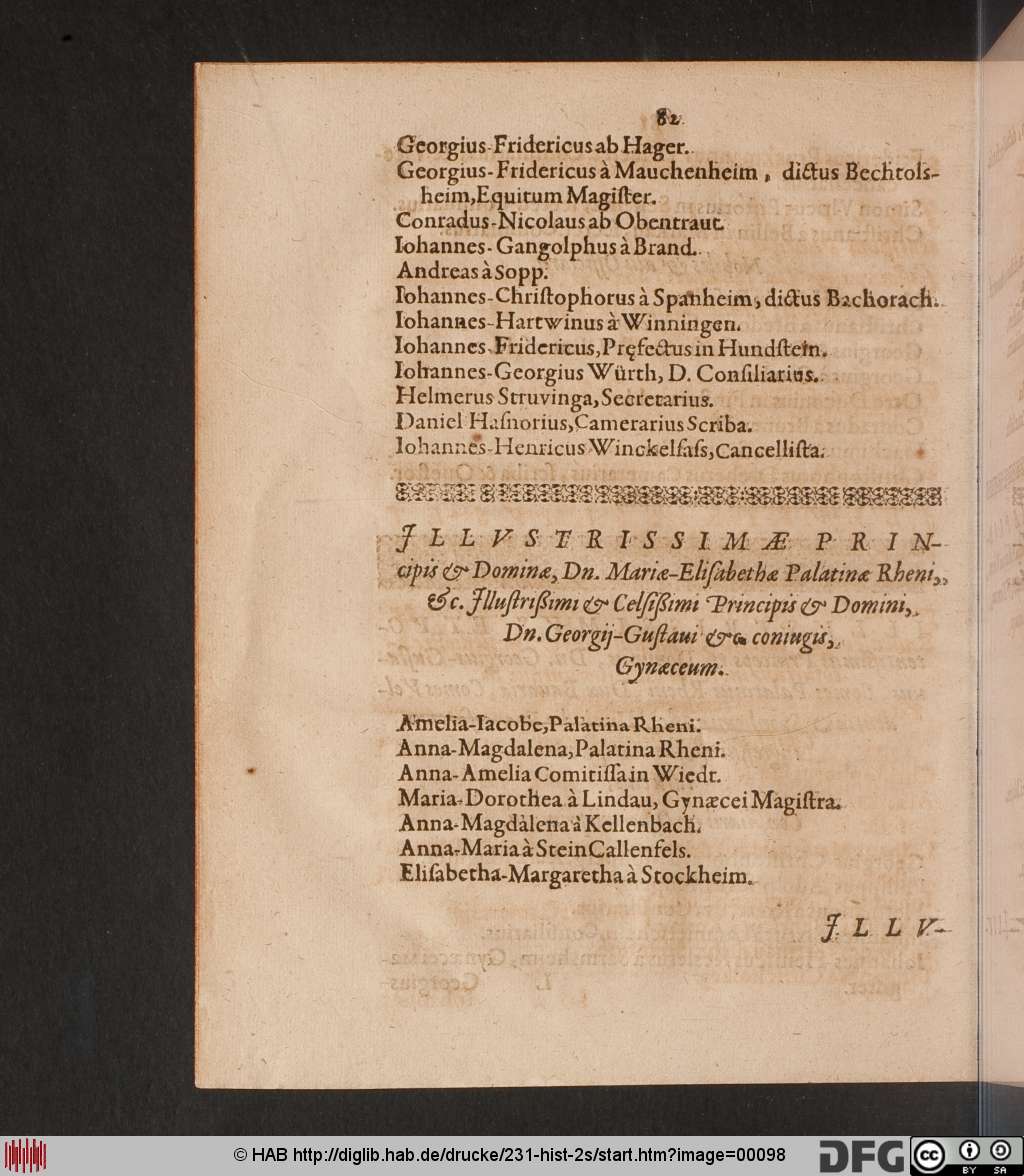 82
Georgius-Fridericus ab Hager.
Georgius-Fridericus à Mauchenheim, dictus Bechtols-
heim, Equitum Magiſter.
Conradus-Nicolaus ab Obentraut.
Iohannes-Gangolphus à Brand.
Andreas à Sopp.
Iohannes-Chriſtophorus à Spanheim, dictus Bachorach.
Iohannes-Hartwinus à Winningen.
Iohannes-Fridericus, Pręfectus in Hundſtein.
Iohannes-Georgius Würth, D. Conſiliarius.
Helmerus Struvinga, Secretarius.
Daniel Haſnorius, Camerarius Scriba.
Iohannes-Henricus Winckelſaſs, Cancelliſta.
ILLVSTRISSIMÆ PRIN-
cipis & Dominæ, Dn. Mariæ-Eliſabethæ Palatinæ Rheni,
&c. Illuſtrißimi & Celſißimi Principis & Domini,
Dn. Georgij-Guſtaui &c. coniugis,
Gynæceum.
Amelia-Iacobe, Palatina Rheni.
Anna-Magdalena, Palatina Rheni.
Anna-Amelia Comitiſſa in Wiedt.
Maria-Dorothea à Lindau, Gynæcei Magiſtra.
Anna-Magdalena à Kellenbach.
Anna-Maria à Stein Callenfels.
Eliſabetha-Margaretha à Stockheim.
ILLV-
© HAB http://diglib.hab.de/drucke/231-hist-2s/start.htm?image=00098
DFG
cc BY SA